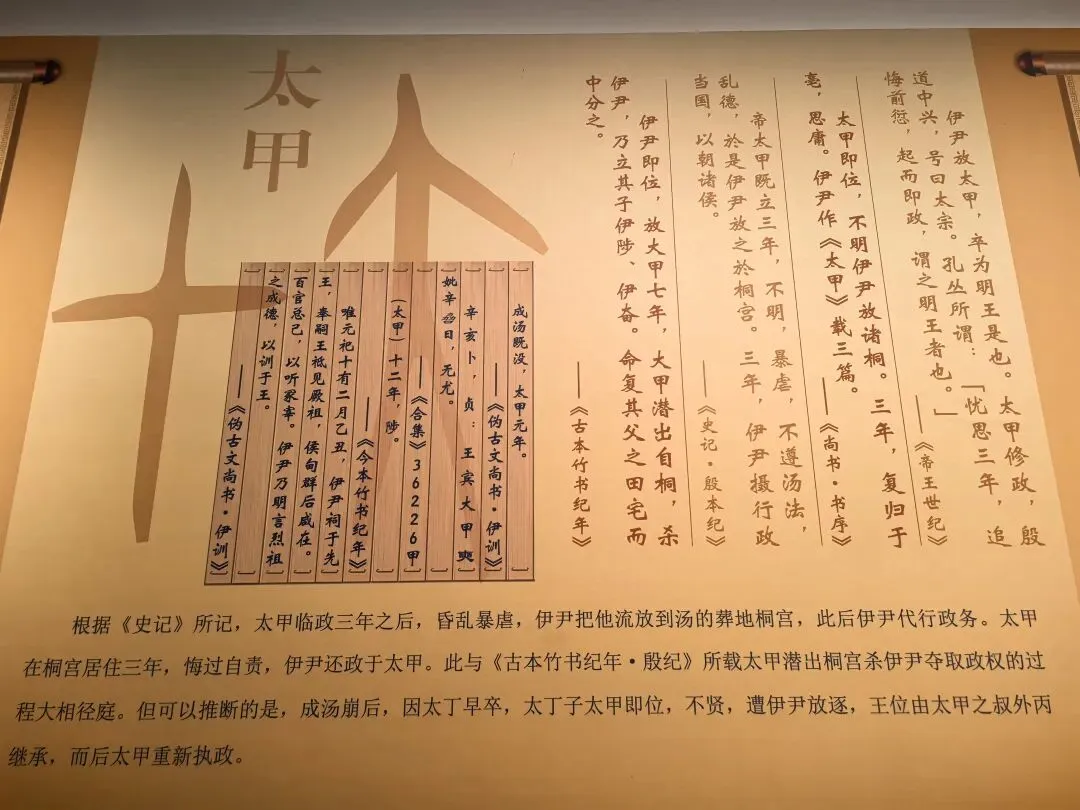 太甲
伊尹放太甲，卒为明王是也。太甲修政，殷
道中兴，号曰太宗。孔丛所谓：「忧思三年，追
悔前愆，起而即政，谓之明王者也。」
——《帝王世纪》
太甲即位，不明伊尹放诸桐。三年，复归于
亳，思庸。伊尹作《太甲》载三篇。
——《尚书·书序》
帝太甲既立三年，不明，暴虐，不遵汤法，
乱德，於是伊尹放之於桐宫。三年，伊尹摄行政
当国，以朝诸侯。
——《史记·殷本纪》
伊尹即位，放大甲七年，大甲潜出自桐，杀
伊尹，乃立其子伊陟、伊奋。命复其父之田宅而
中分之。
——《古本竹书纪年》
成汤既没，太甲元年。
——《伪古文尚书·伊训》
辛亥卜，贞：王宾大甲奭
妣辛 日，无尤。
——《合集》36226甲
（太甲）十二年，陟。
——《今本竹书纪年》
唯元祀十有二月乙丑，伊尹祠于先
王，奉嗣王祗见厥祖，侯甸群后咸在。
百官总己，以听冢宰。伊尹乃明言烈祖
之成德，以训于王。
——《伪古文尚书·伊训》
根据《史记》所记，太甲临政三年之后，昏乱暴虐，伊尹把他流放到汤的葬地桐宫，此后伊尹代行政务。太甲
在桐宫居住三年，悔过自责，伊尹还政于太甲。此与《古本竹书纪年·殷纪》所载太甲潜出桐宫杀伊尹夺取政权的过
程大相径庭。但可以推断的是，成汤崩后，因太丁早卒，太丁子太甲即位，不贤，遭伊尹放逐，王位由太甲之叔外丙
继承，而后太甲重新执政。